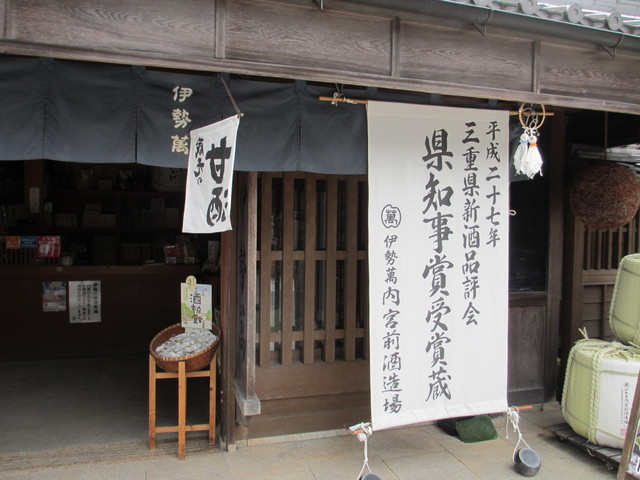 伊勢萬
甘酒
酒粕飴
平成二十七年
三重県新酒品評会
県知事賞受賞蔵
萬 伊勢萬内宮前酒造場